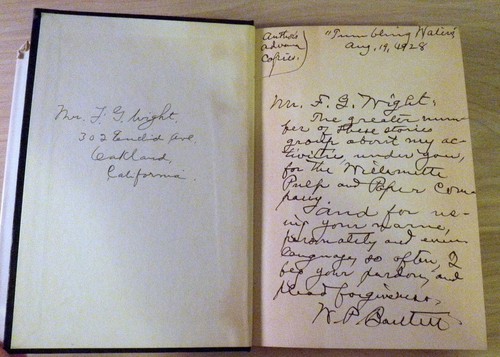 Mr. F. G. Wight,
302 Euclid Ave.
Oakland,
California.
Author's
Advance
Copies.
"Tumbling Waters"
Aug. 19, 1928
Mr. F. G. Wight:
The greater num-
ber of these stories
group about my ac-
tivities, under you,
for the Willamette
Pulp and Paper Com-
pany
and for us-
ing your name,
personately and
language, so often, I
beg your pardon, and
plead forgiveness,
W. P. Bartlett